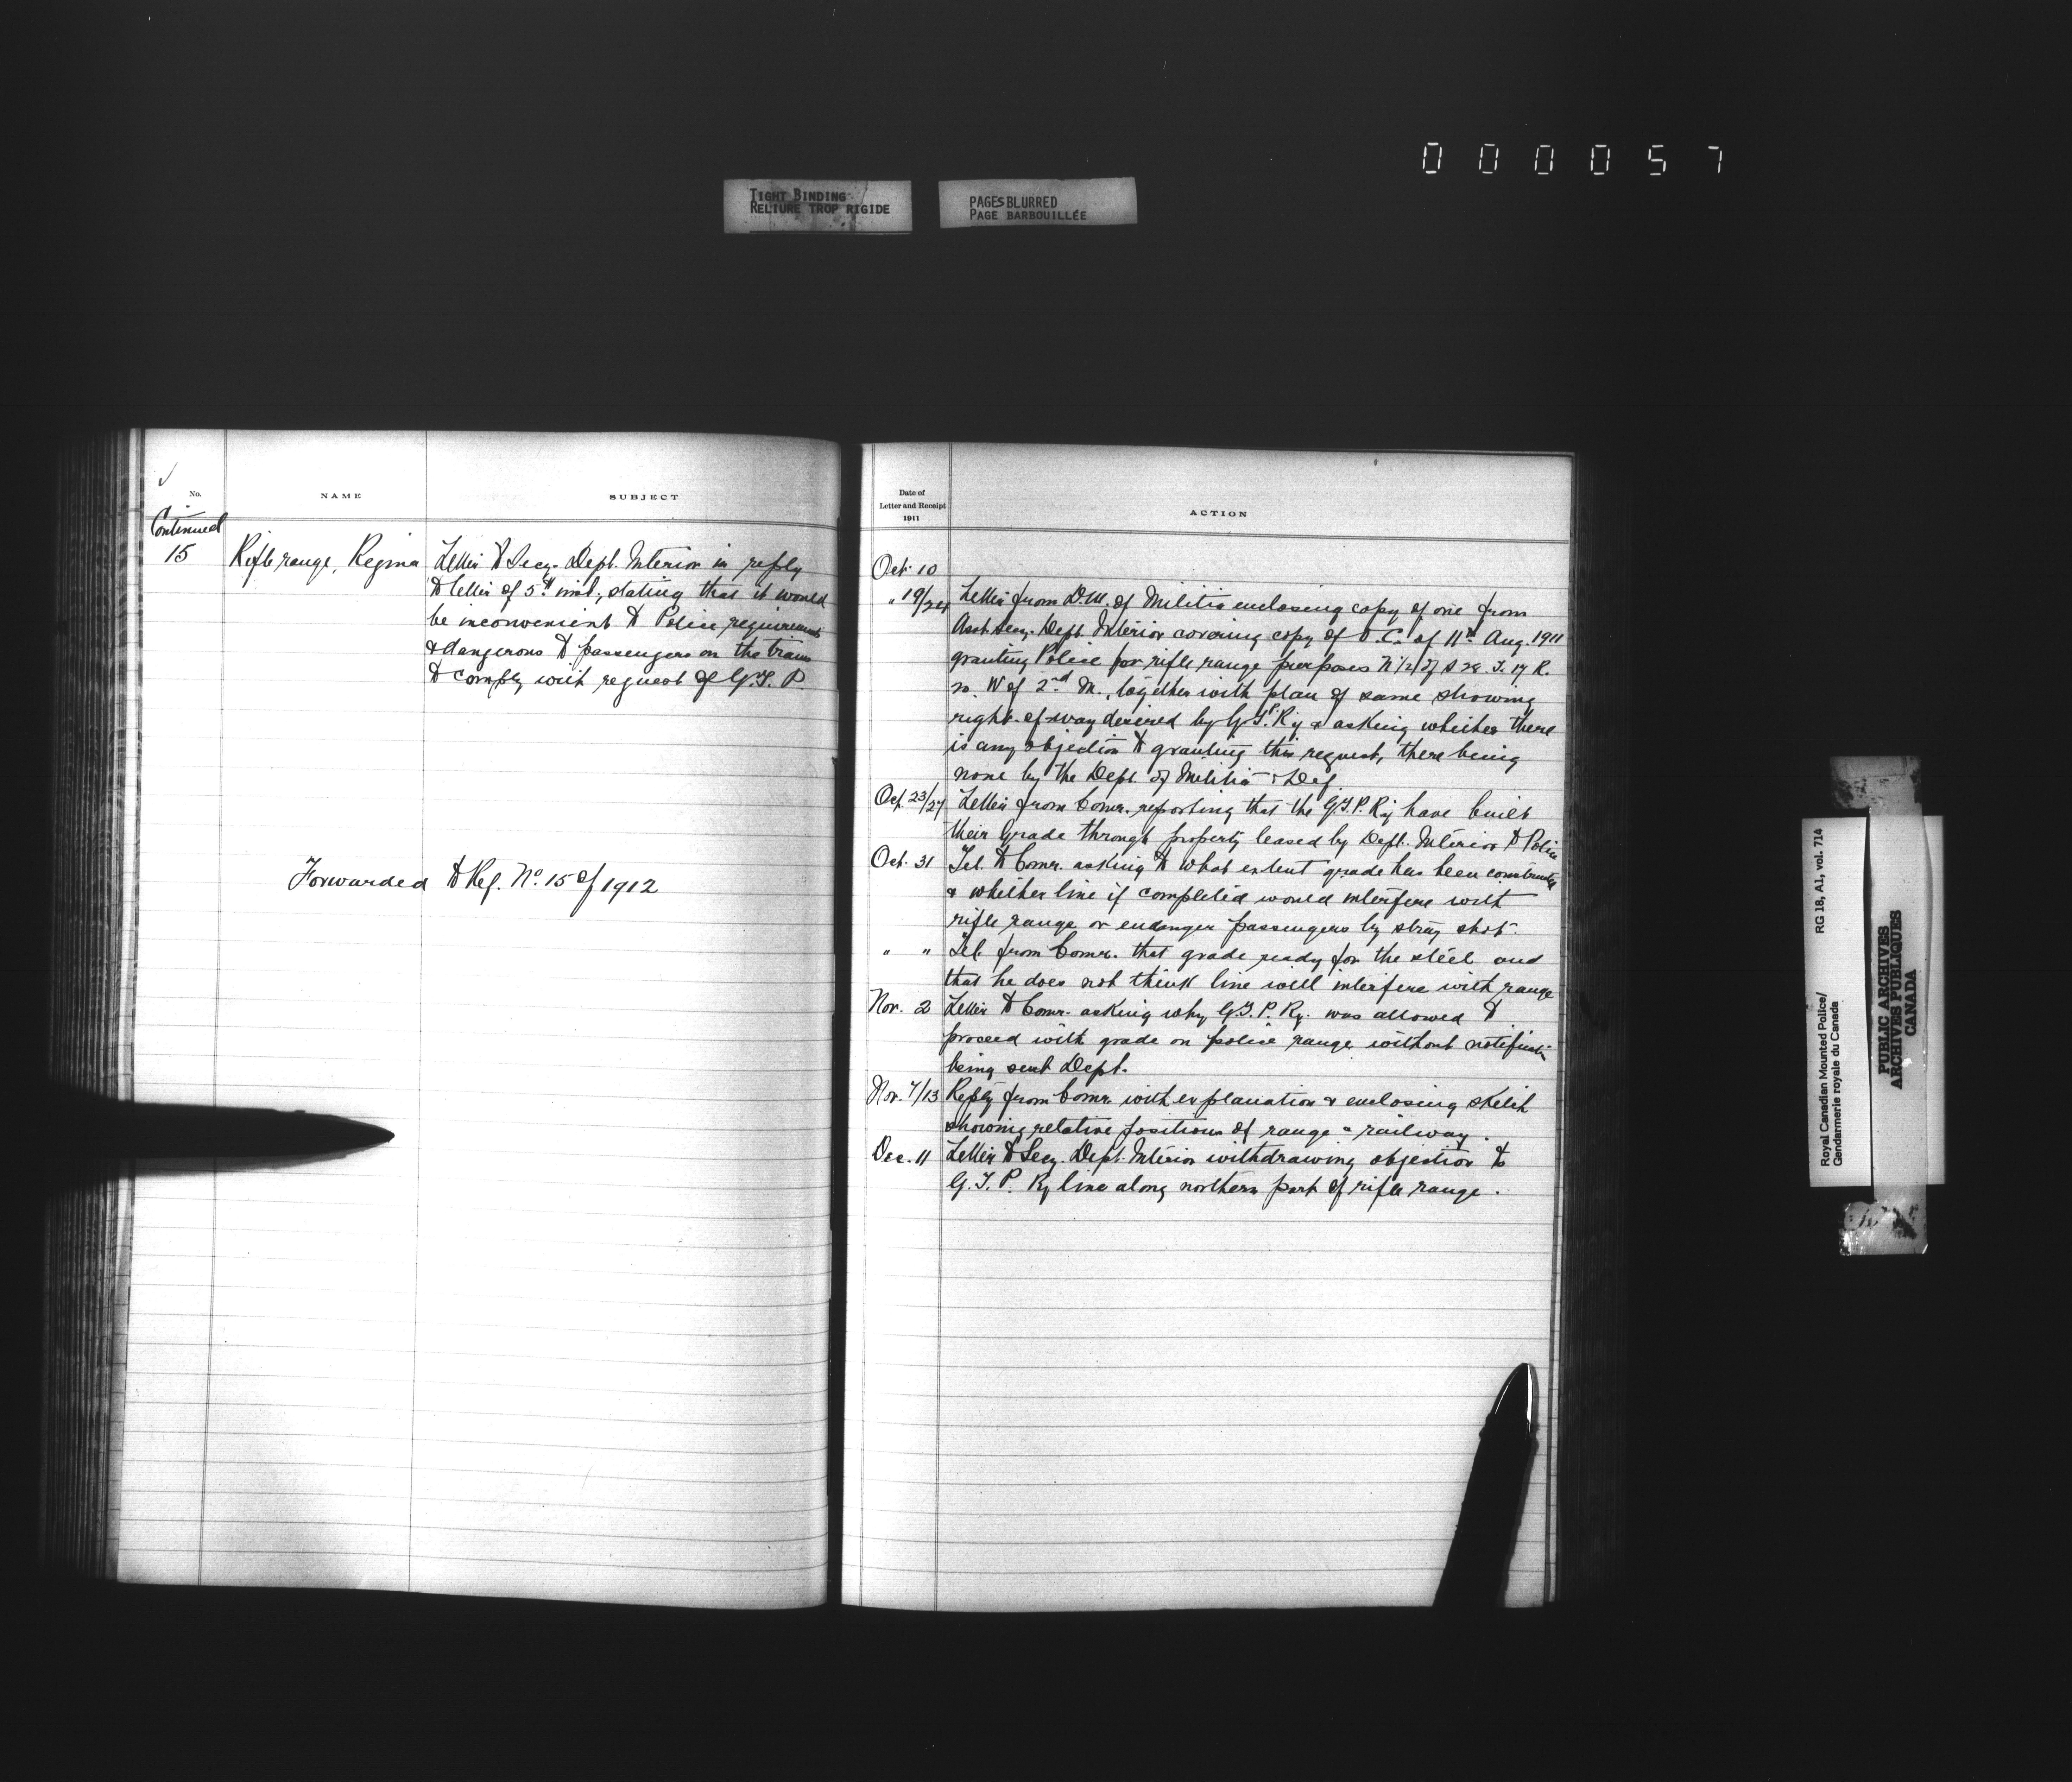 000057
TIGHT BINDING
RELIURE TROP RIGIDE
PAGES BLURRED
PAGE BARBOUILLÉE
No.
NAME
SUBJECT
Continued
15
Rifle range, Regina
Letter to Secy. Dept. Interior in reply
to letter of 5th inst., stating that it would
be inconvenient to Police requirements
& dangerous to passengers on the trains
to comply with request of G.T.P.
Forwarded to Ref. No. 15 of 1912
Date of
Letter and Receipt
1911
ACTION
Oct. 10
" 19/24 Letter from D.M. of Militia enclosing copy of one from
Asst. Secy. Dept. Interior covering copy of O.C. of 11th Aug. 1911
granting Police for rifle range purposes N 1/2 of S 28. T. 17 R.
20. W of 2nd M., together with plan of same showing
right-of-way desired by G.T.P. Ry & asking whether there
is any objection to granting this request, there being
none by the Dept. of Militia & Def.
Oct. 23/27 Letter from Comr. reporting that the G.T.P. Ry have built
their grade through property leased by Dept. Interior to Police
Oct. 31 Tel. to Comr. asking to what extent grade has been constructed
& whether line if completed would interfere with
rifle range or endanger passengers by stray shot.
" " Tel. from Comr. that grade ready for the steel and
that he does not think line will interfere with range
Nov. 2 Letter to Comr. asking why G.T.P. Ry. was allowed to
proceed with grade on police range without notification
being sent Dept.
Nov. 7/13 Reply from Comr. with explanation & enclosing sketch
showing relative positions of range & railway.
Dec. 11 Letter to Secy. Dept. Interior withdrawing objection to
G.T.P. Ry line along northern part of rifle range.
Royal Canadian Mounted Police/
Gendarmerie royale du Canada
RG 18, A1, vol. 714
PUBLIC ARCHIVES
ARCHIVES PUBLIQUES
CANADA